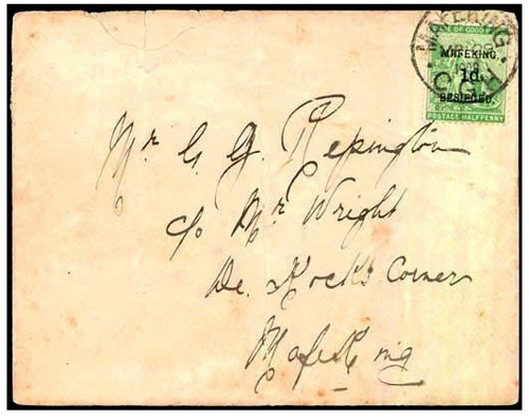 MAFEKING
C.G.H
OF GOOD
MAFEKING,
1d.
BESIEGED.
POSTAGE HALFPENNY
Mr G. G. Repington
c/o Mr Wright
De Kocks Corner
Mafeking